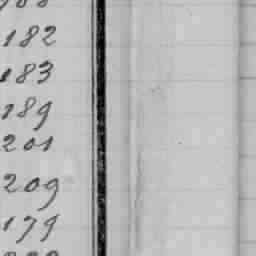 182
183
189
201
209
179